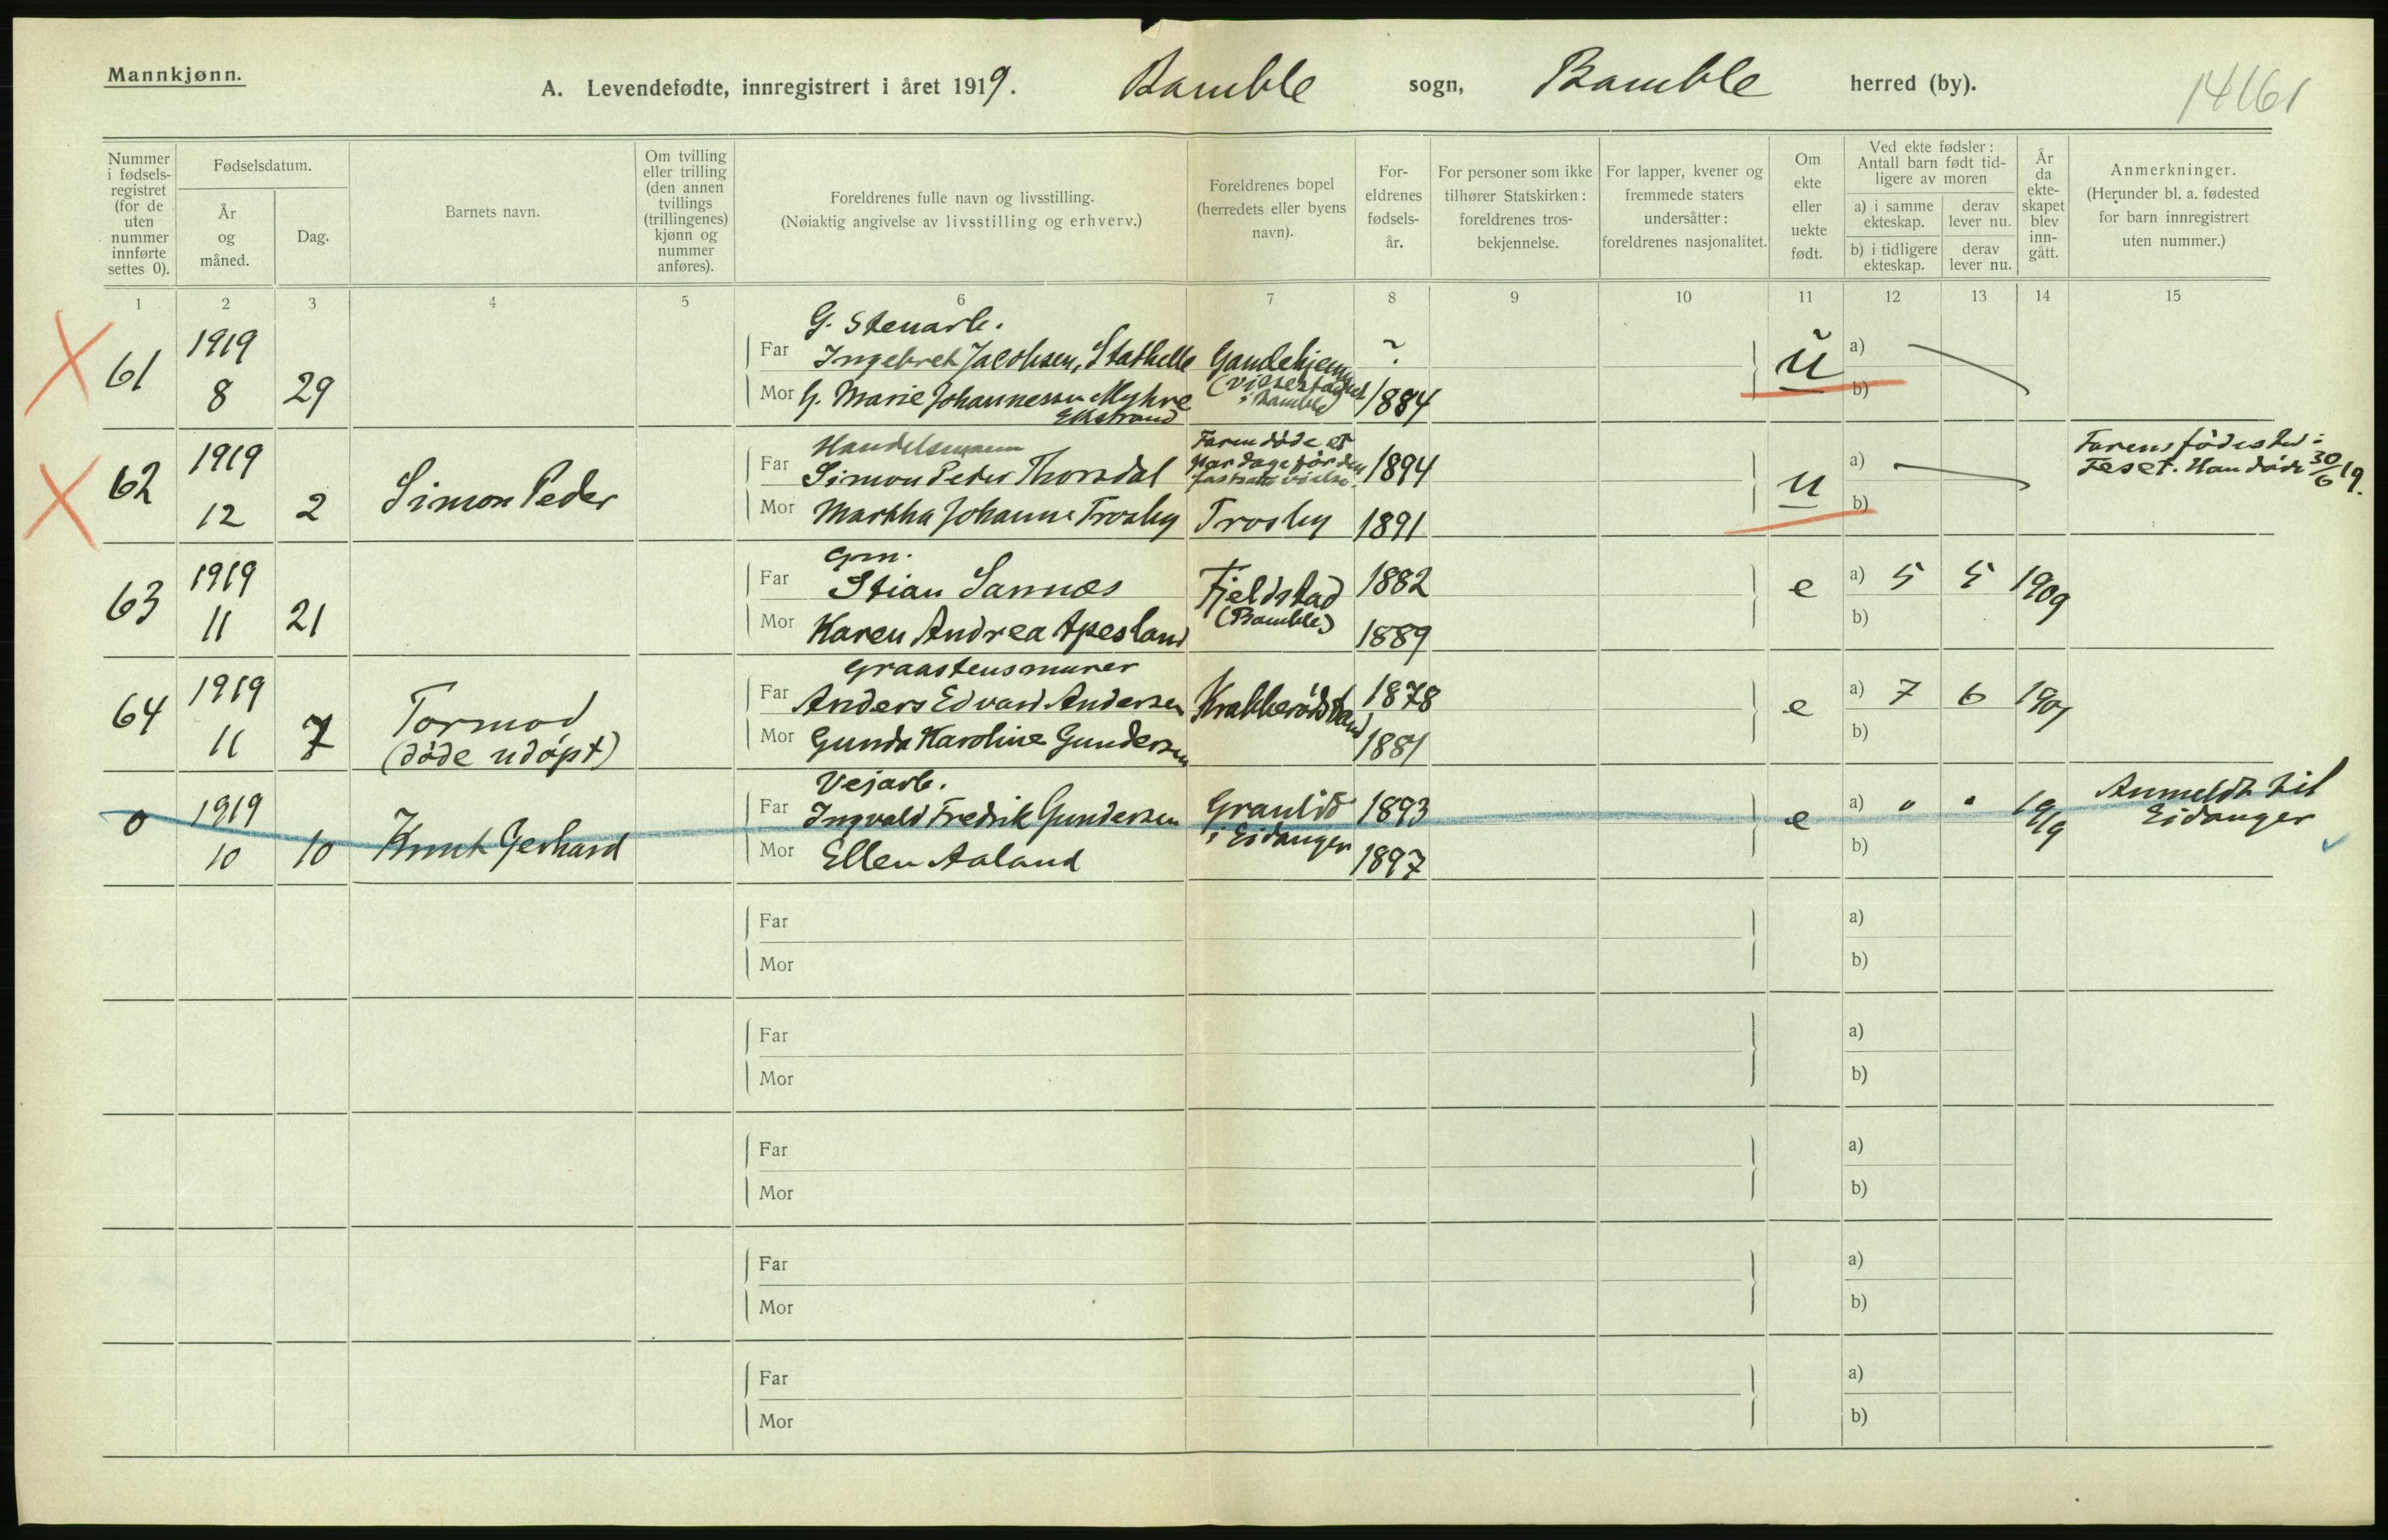 Mannkjønn.
A. Levendefødte, innregistrert i året 1919. Bamble sogn, Bamble herred (by).
14161
Nummer i fødsels-registret (for de uten nummer innførte settes 0).
Fødselsdatum.
År og måned.
Dag.
Barnets navn.
Om tvilling eller trilling (den annen tvillings (trillingenes) kjønn og nummer anføres).
Foreldrenes fulle navn og livsstilling.
(Nøiaktig angivelse av livsstilling og erhverv.)
Foreldrenes bopel (herredets eller byens navn).
For-eldrenes fødsels-år.
For personer som ikke tilhører Statskirken: foreldrenes tros-bekjennelse.
For lapper, kvener og fremmede staters undersåtter: foreldrenes nasjonalitet.
Om ekte eller uekte født.
Ved ekte fødsler: Antall barn født tid-ligere av moren
a) i samme ekteskap.
derav lever nu.
b) i tidligere ekteskap.
derav lever nu.
År da ekte-skapet blev inn-gått.
Anmerkninger.
(Herunder bl. a. fødested for barn innregistrert uten nummer.)
1 2 3 4 5 6 7 8 9 10 11 12 13 14 15
G. Stenarb.
61 1919 Far Ingebret Jacobsen, Stathelle ? ŭ a)
8 29 Mor G. Marie Johannesen Myhre 1884 b)
i Bamble)
Ekstrand
Handelsmann Faren døde et
62 1919 Far Simon Peder Thorsdal par dage før den 1894 u a) Farens fødested:
Simon Peder
12 2 Mor Martha Johanne Trosby Trosby 1891 b) Han døde 30/6 19.
Gm.
63 1919 Far Stian Sannes Fjeldstad 1882 e a) 5 5 1909
11 21 Mor Karen Andrea Apesland (Bamble) 1889 b)
Graastensmurer
64 1919 Tormod Far Anders Edvard Andersen 1878 e a) 7 6 1901
11 7 (døde udøpt) Mor Gunda Karoline Gundersen 1881 b)
Vejarb.
0 1919 Far Ingvald Fredrik Gundersen Granlid 1893 e a) " " 1919 Anmeldt til
10 10 Knut Gerhard Mor Ellen Aaland i Eidanger 1897 b) Eidanger
Far a)
Mor b)
Far a)
Mor b)
Far a)
Mor b)
Far a)
Mor b)
Far a)
Mor b)